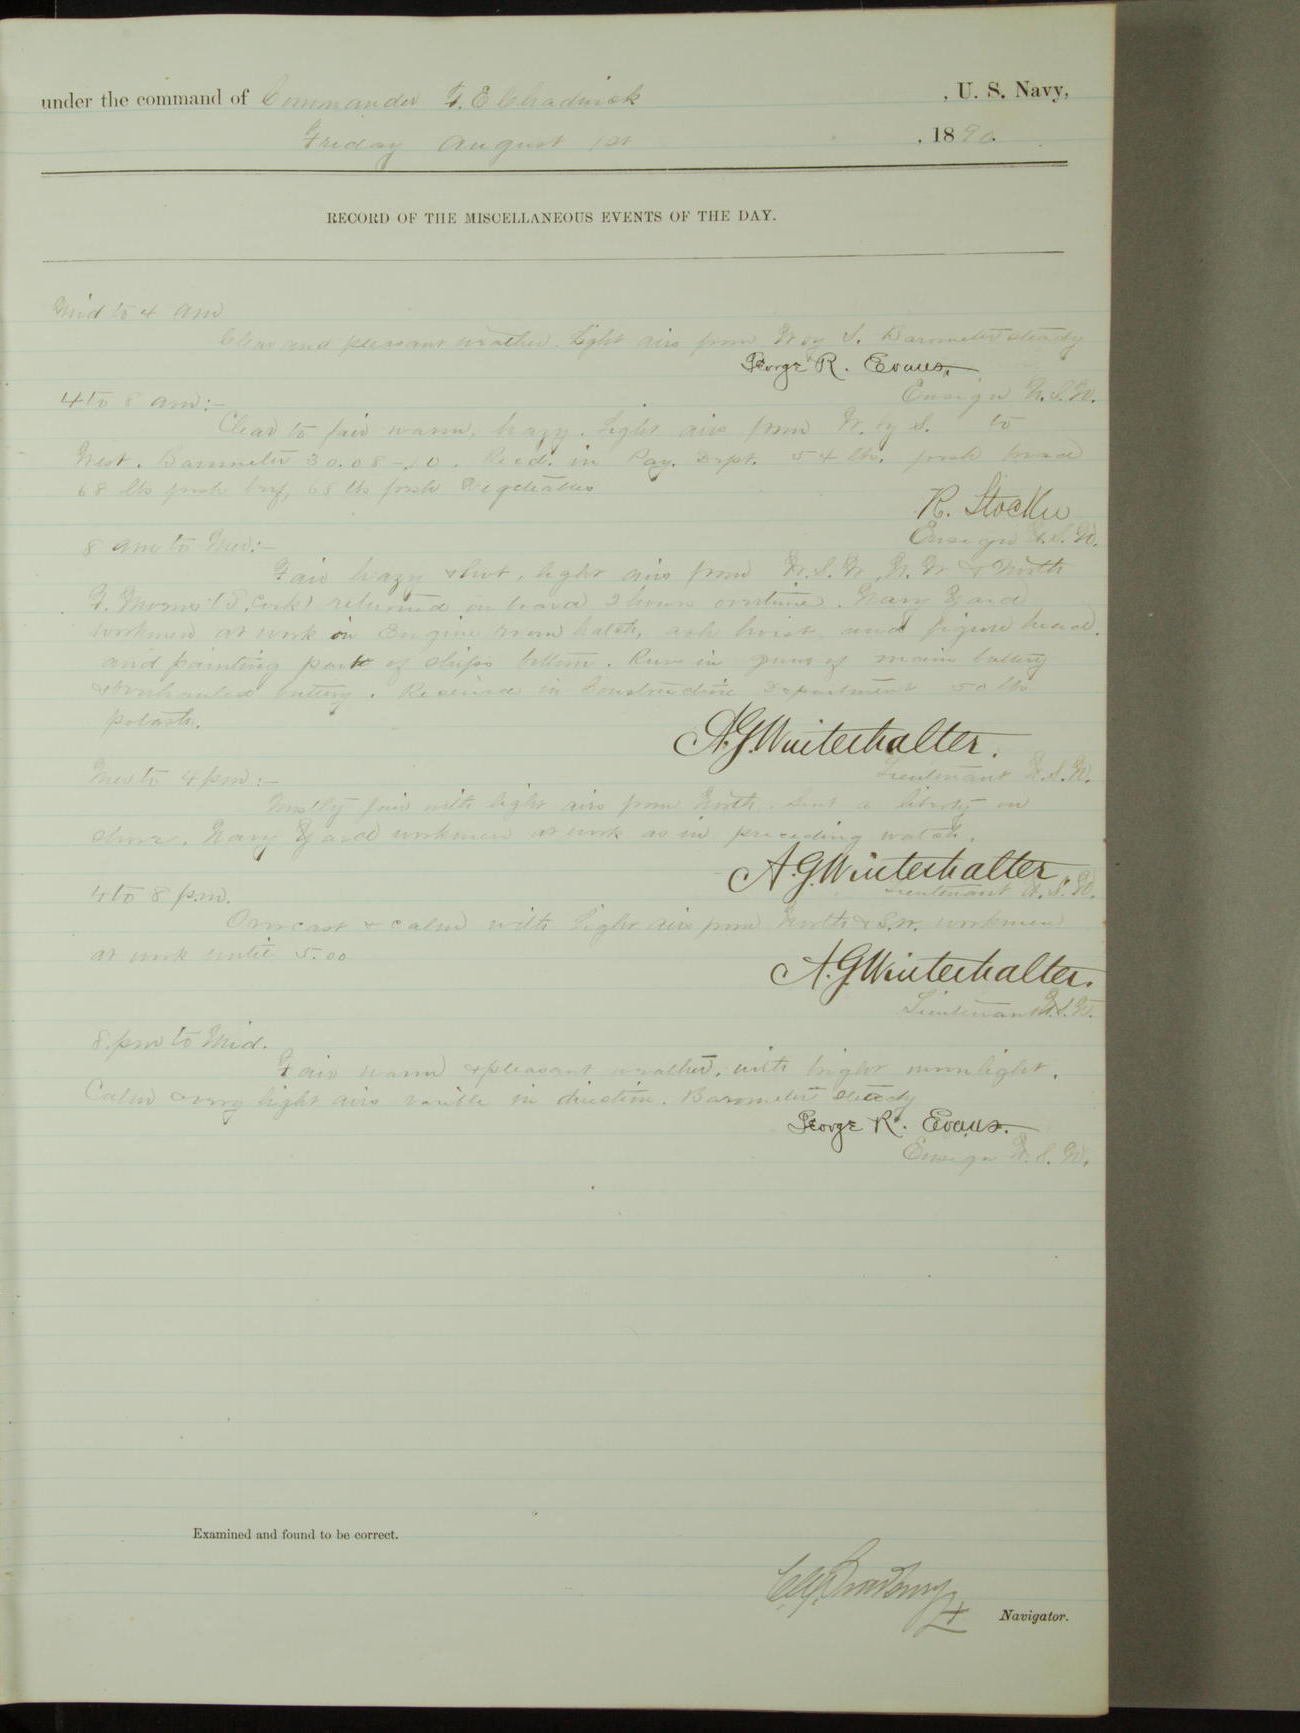 under the command of Commander F. E. Chadwick , U. S. Navy,
Friday August 1st , 1890.
RECORD OF THE MISCELLANEOUS EVENTS OF THE DAY.
Mid to 4 am
Clear and pleasant weather. Light airs from W by S. Barometer steady
George R. Evans,
Ensign U.S.N.
4 to 8 am:-
Clear to fair warm, hazy. Light airs from W. by S. to
West. Barometer 30.08-.10. Recd. in Pay. Dept. 54 lbs. fresh bread
68 lbs fresh beef, 68 lbs fresh vegetables
R. Stocker
Ensign U.S.N.
8 am to Mer:-
Fair hazy & hot, light airs from W.S.W, N.W & North
F. Morris (S. Cook) returned on board 2 hours overtime. Navy Yard
workmen at work on Engine room hatch, ash hoist, and figure head,
and painting part of ships bottom. Run in guns of main battery
& overhauled battery. Received in Construction Department 50 lbs
potash.
A.G. Winterhalter.
Lieutenant U.S.N.
Mer to 4 pm:-
Mostly fair with light airs from North. Sent a liberty on
shore. Navy Yard workmen at work as in preceding watch.
A.G. Winterhalter
Lieutenant U.S.N.
4 to 8 p.m.
Overcast & calm with light airs from North & S.W. workmen
at work until 5.00
A.G. Winterhalter.
Lieutenant U.S.N.
8. pm to Mid.
Fair warm & pleasant weather, with bright moonlight.
Calm & very light airs in direction. Barometer steady
George R. Evans.
Ensign U.S.N.
Examined and found to be correct.
Navigator.